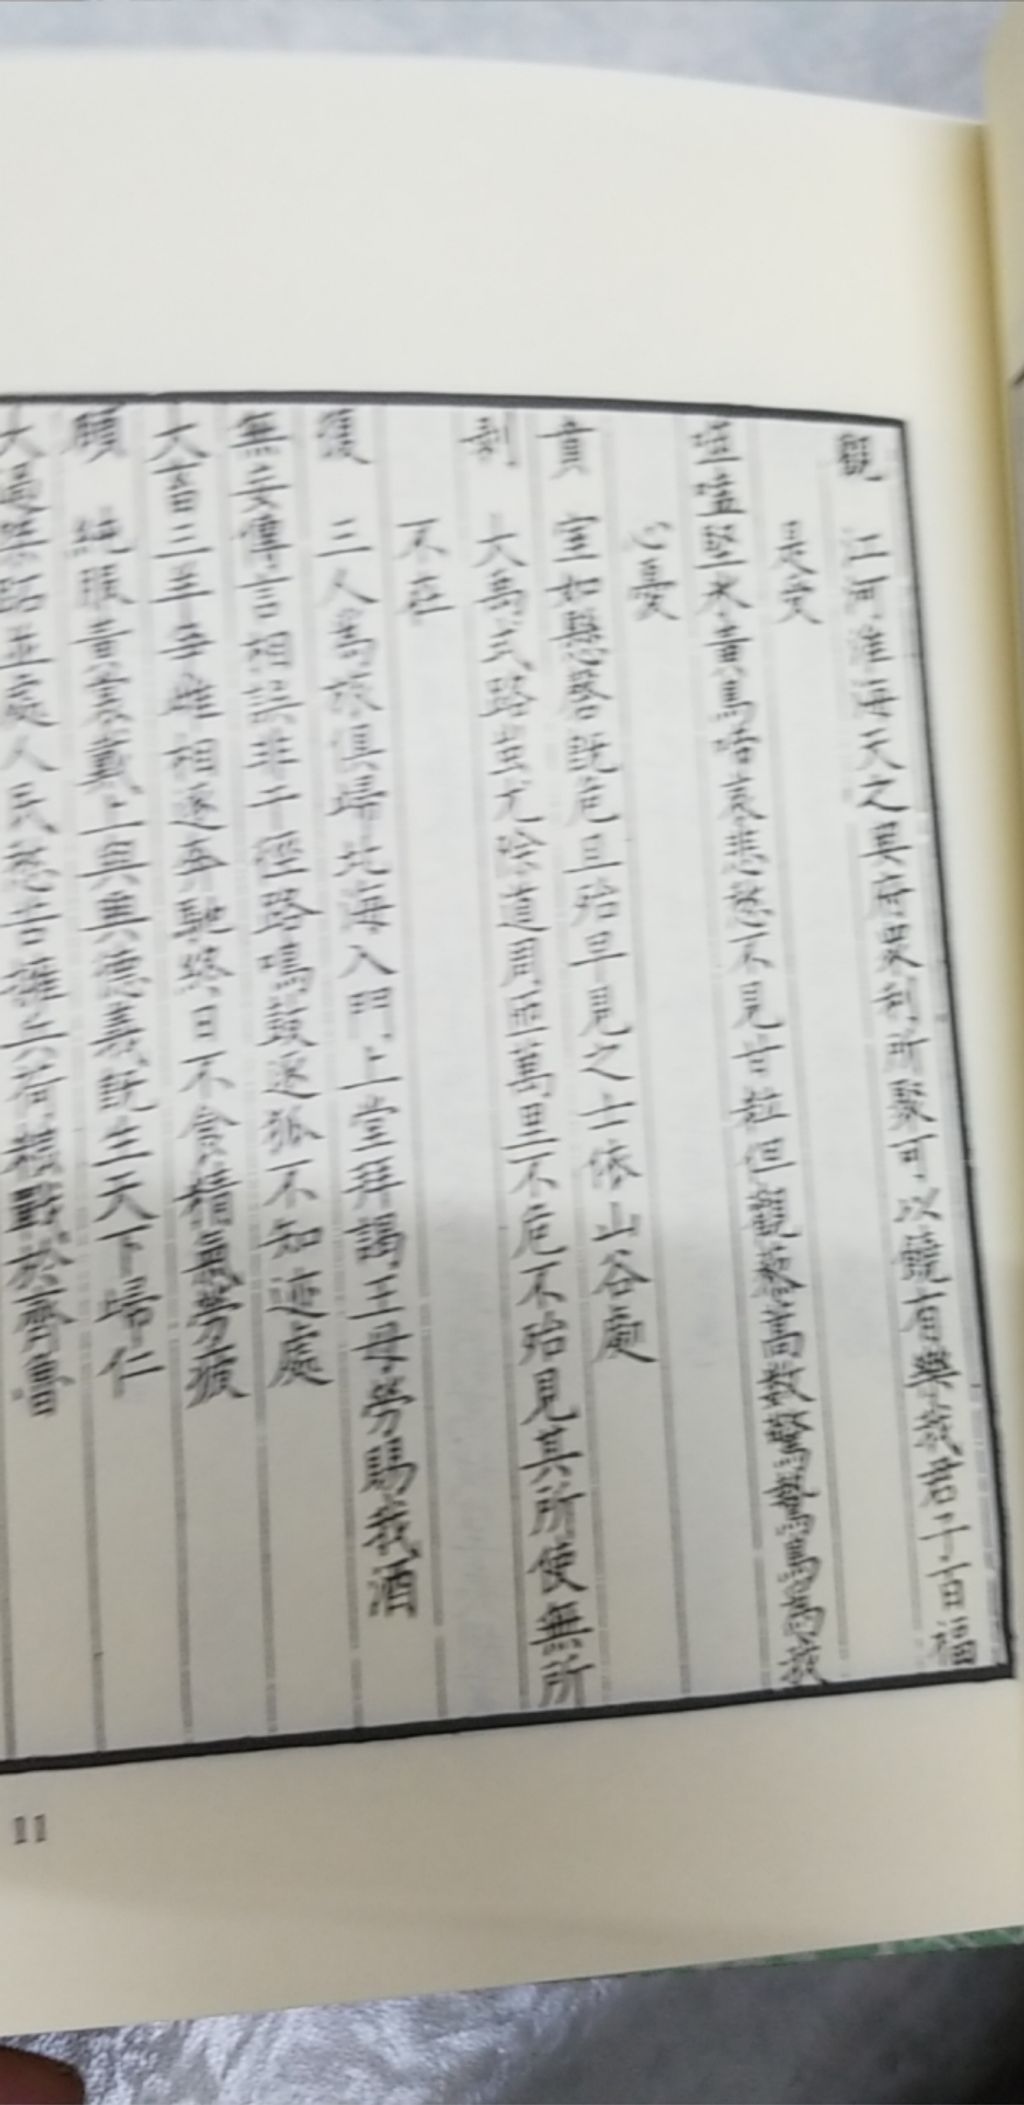 觀 江河淮海天之奧府衆利所聚可以饒有樂我君子百福
是受
噬嗑堅冰黃馬啼哀悲愁不見甘粒但觀藜蒿數驚鷙鳥爲我
心憂
賁 室如懸磬既危且殆早見之士依山谷處
剝 大禹式路蚩尤除道周匝萬里不危不殆見其所使無所
不在
復 三人爲旅俱歸北海入門上堂拜謁王母勞賜我酒
無妄傳言相誤非干徑路鳴鼓逐狐不知迹處
大畜三羊爭雌相逐奔馳終日不食精氣勞疲
頤 純服黃裳戴上與興德義既生天下歸仁
大過桀跖並處人民愁苦擁兵荷糧戰於齊魯
11